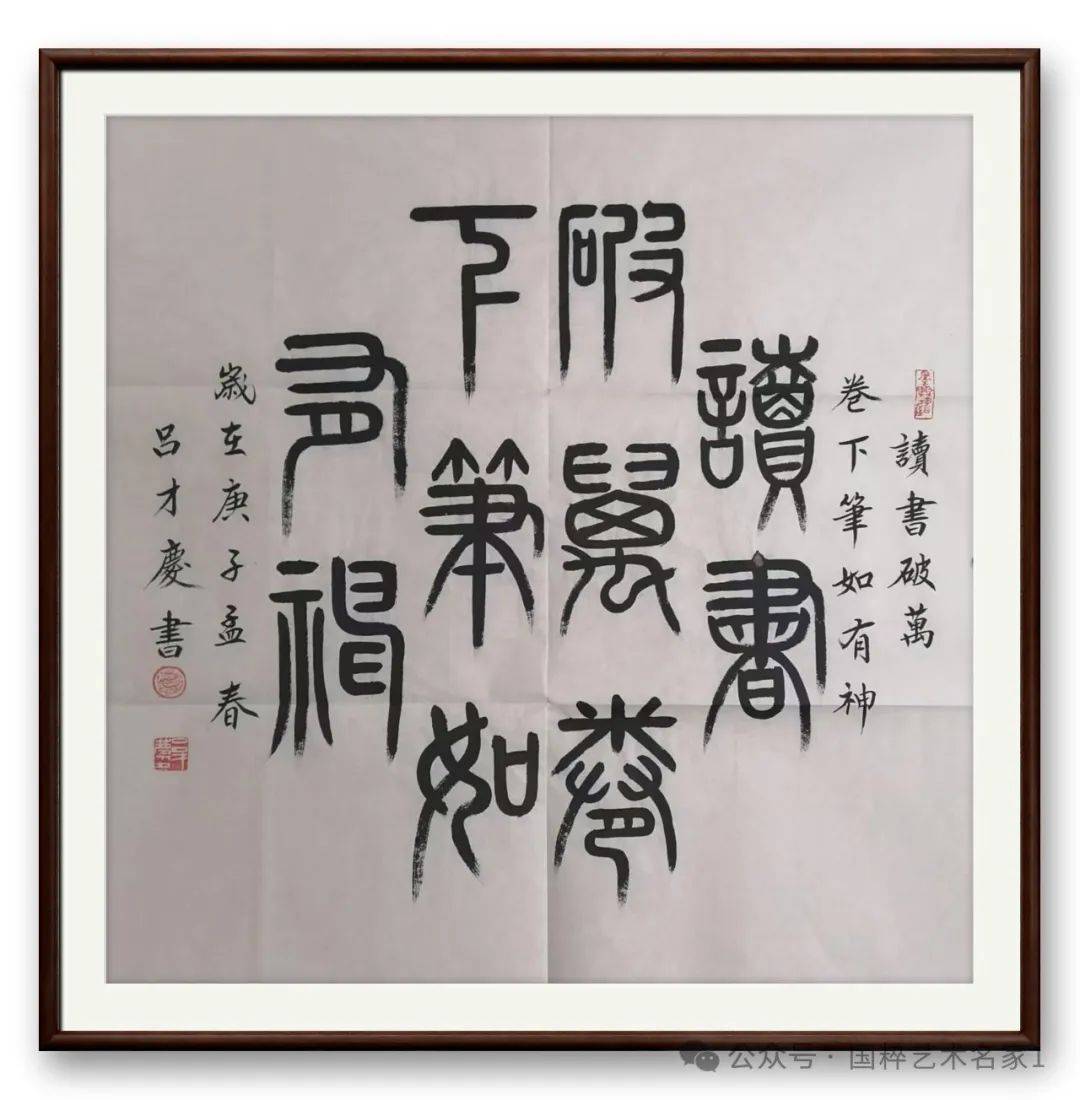 讀書破萬
卷下筆如有神
讀書
破萬卷
下筆如
有神
歲在庚子孟春
呂才慶書
公众号·国粹艺术名家1